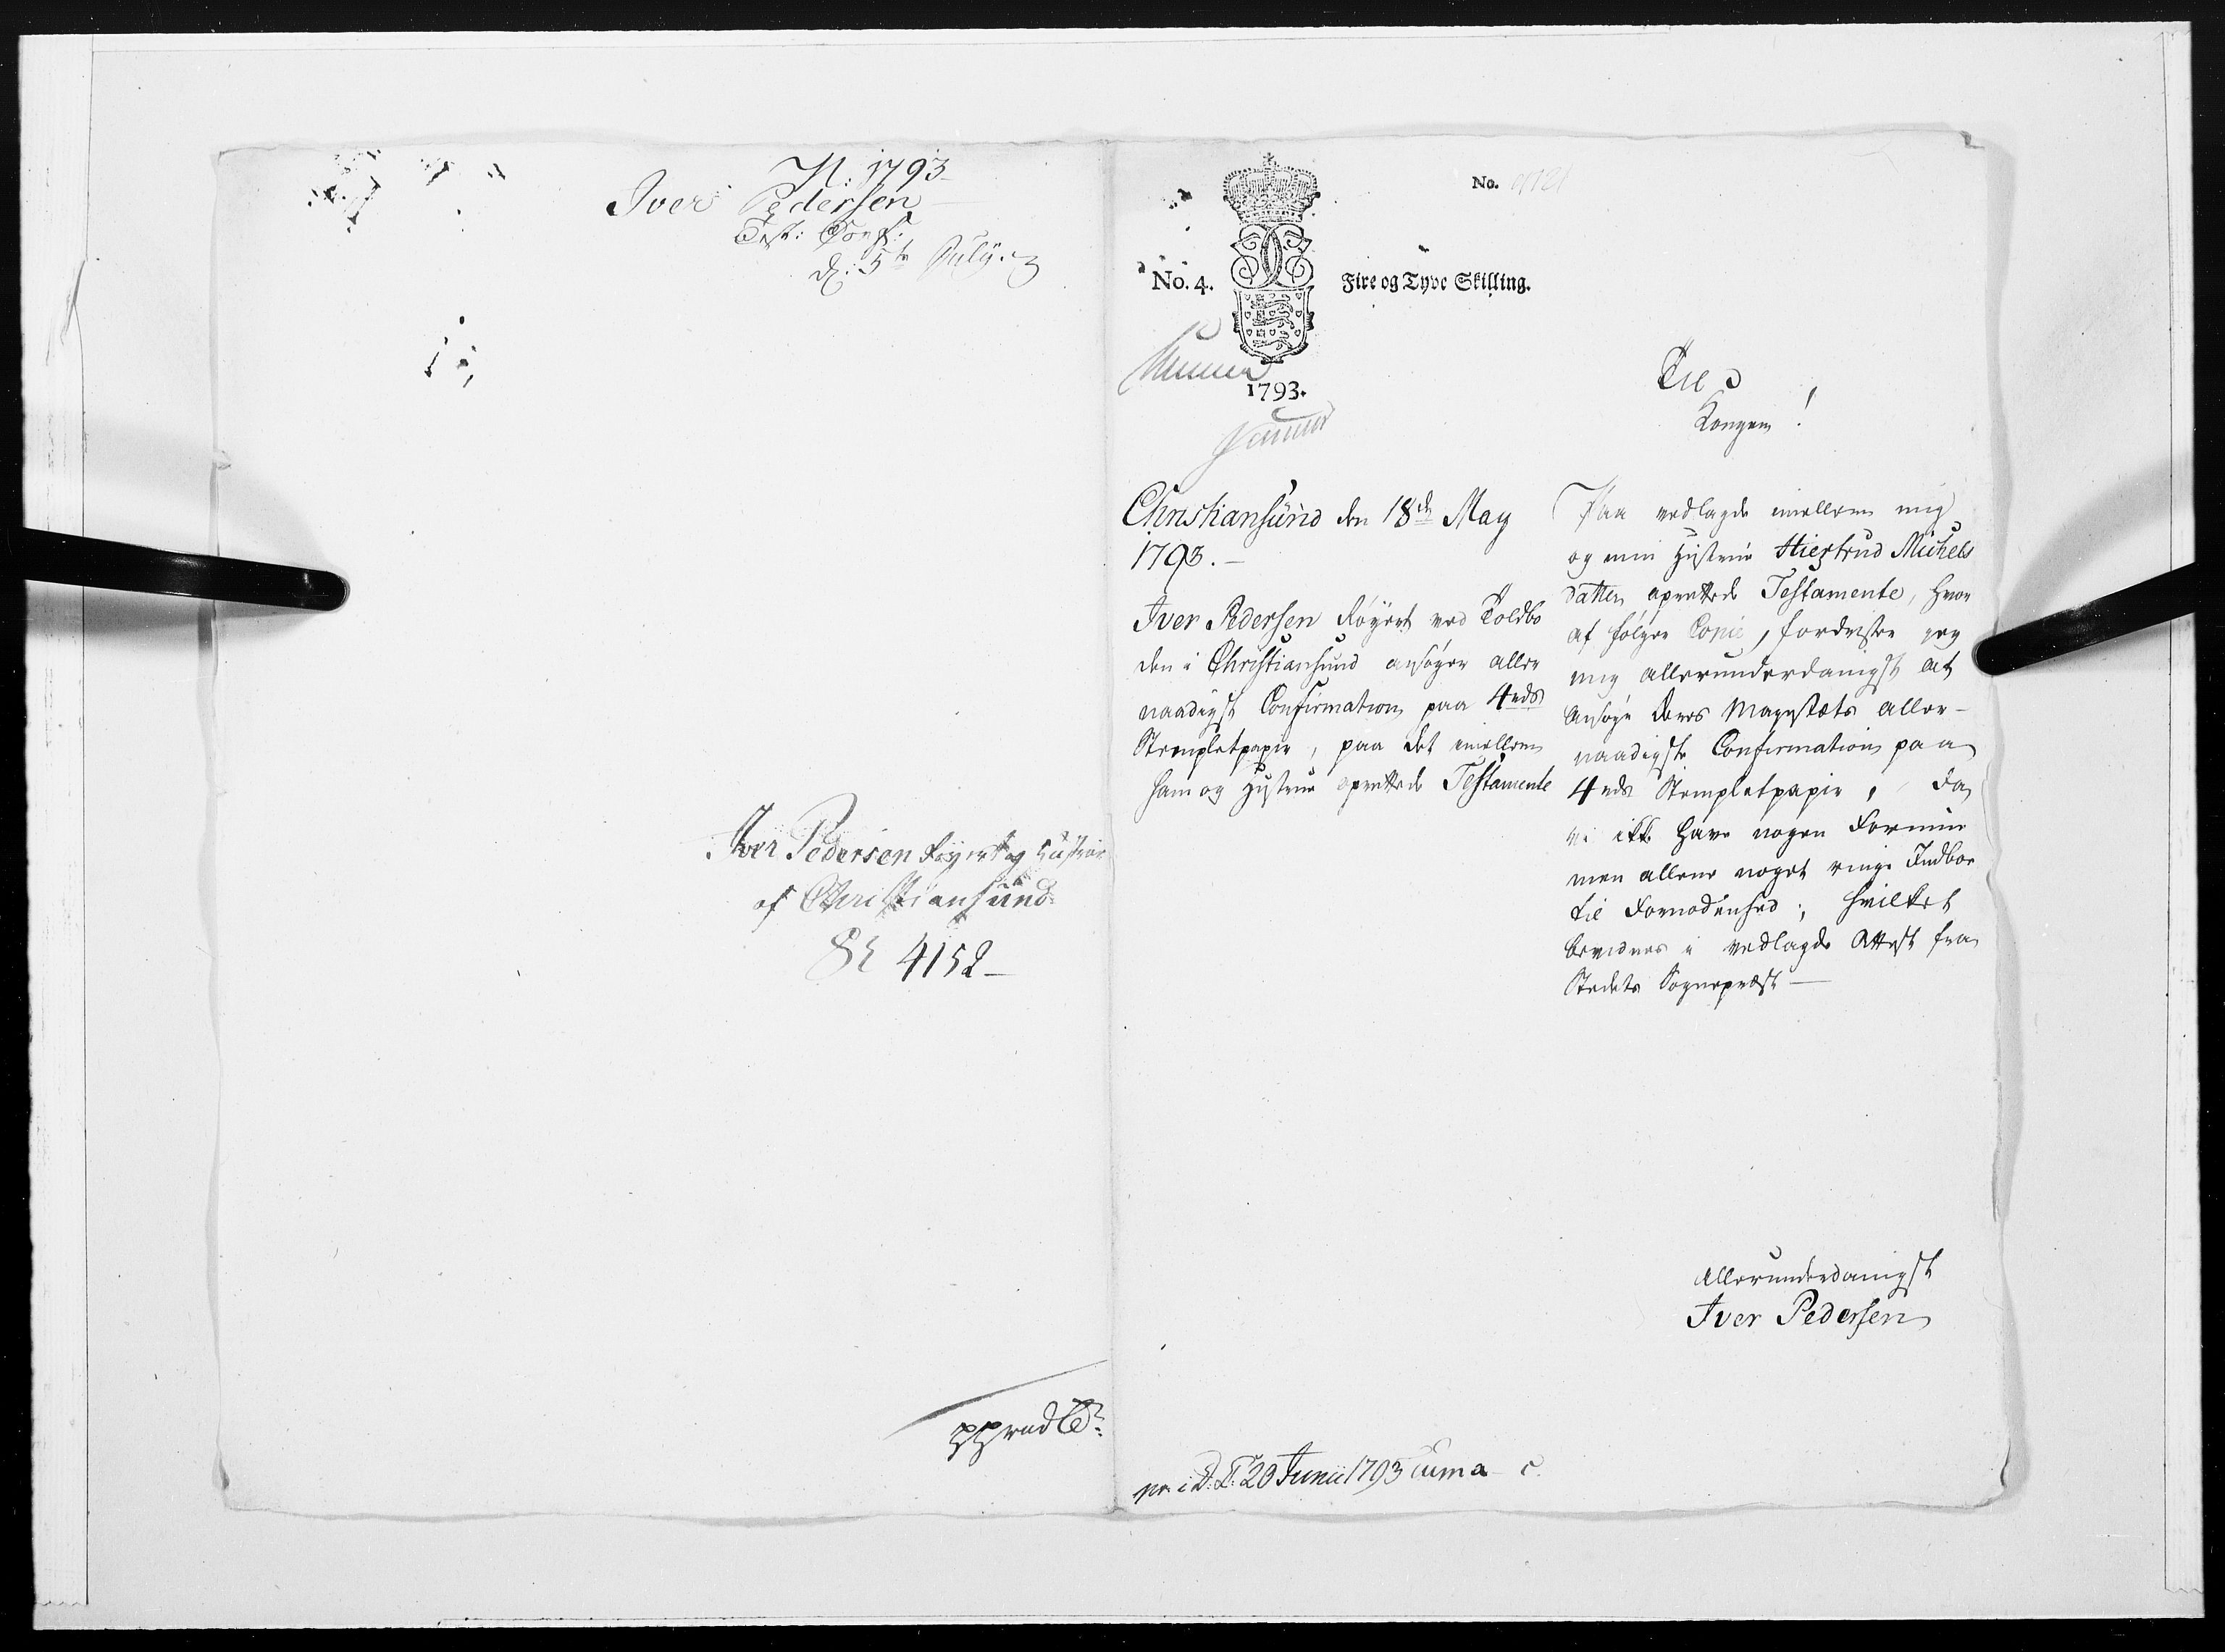 N: 1793
Iver Pedersen
Test: Conf:
d: 5te July. 93
Iver Pedersen Røyert og Hustrue
af Christiansund
4152
No. 4.
No.
Fire og Tyve Skilling.
1793.
Til
Kongen!
Christiansund den 18de May
1793.
Iver Pedersen Røyert ved Toldbo
den i Christiansund ansøger aller
naadigst Confirmation paa 4rds
Stemplet papir, paa det imellem
ham og Hustrue oprettede Testamente
Paa vedlagde imellem mig
og min Hustrue Hiertrud Michels
datter oprettede Testamente, hvor
af følger Copie, fordrister jeg
mig allerunderdanigst at
ansøge Deres Mayestæts aller-
naadigste Confirmation paa
4rds Stempletpapir, da
vi ikke have nogen Formue
men allene noget ringe Indboe
til Fornødenhed; hvilket
bevidnes i vedlagde Attest fra
Stedets Sognepræst
Allerunderdanigst
Iver Pedersen
pr. i D: C: 20 Junii 1793 cum a